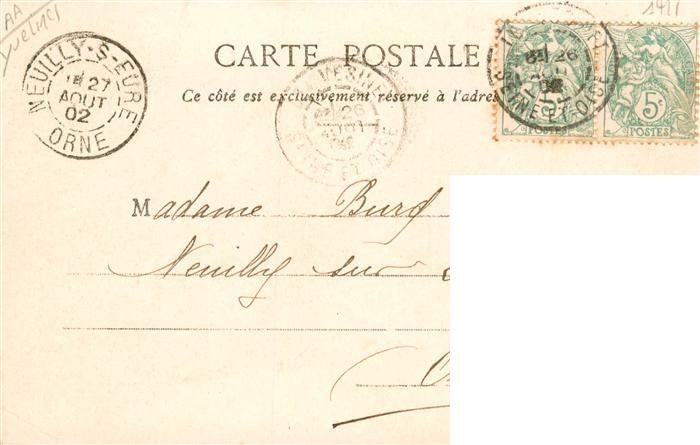 AA
Yvelines
CARTE POSTALE
Ce côté est exclusivement réservé à l'adres
NEUILLY-S-EURE
27
AOUT
02
ORNE
LE VESINET
26
SEINE ET OISE
26
SEINE ET OISE
5c
POSTES
POSTES
Madame Burg
Neuilly sur